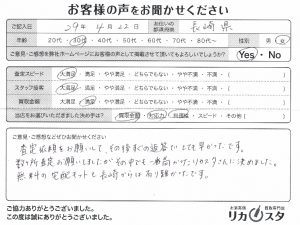 お客様の声をお聞かせください
ご記入日 29年4月22日 お住いの都道府県 長崎県
年齢 20代・30代・40代・50代・60代・70代・80代〜 性別 男・女
ご意見・ご感想を弊社ホームページにお客様の声として掲載させて頂いてもよろしいでしょうか? Yes・No
査定スピード 大満足・満足・やや満足・どちらでもない・やや不満・不満・( )
スタッフ接客 大満足・満足・やや満足・どちらでもない・やや不満・不満・( )
買取金額 大満足・満足・やや満足・どちらでもない・やや不満・不満・( )
当店をお選びいただきました決め手は? 買取金額・対応力・知識・スピード・その他( )
ご意見・ご感想などぜひお聞かせください。
査定依頼をお願いしてその後すぐの返答でとても早かったです。
数ヶ所査定お願いしましたがその中でも一番高かったリカスタさんに決めました。
無料の宅配キットと長崎からは有り難かったです。
ご協力ありがとうございました。
この度は誠にありがとうございました。
お酒高価買取専門店
リカスタ